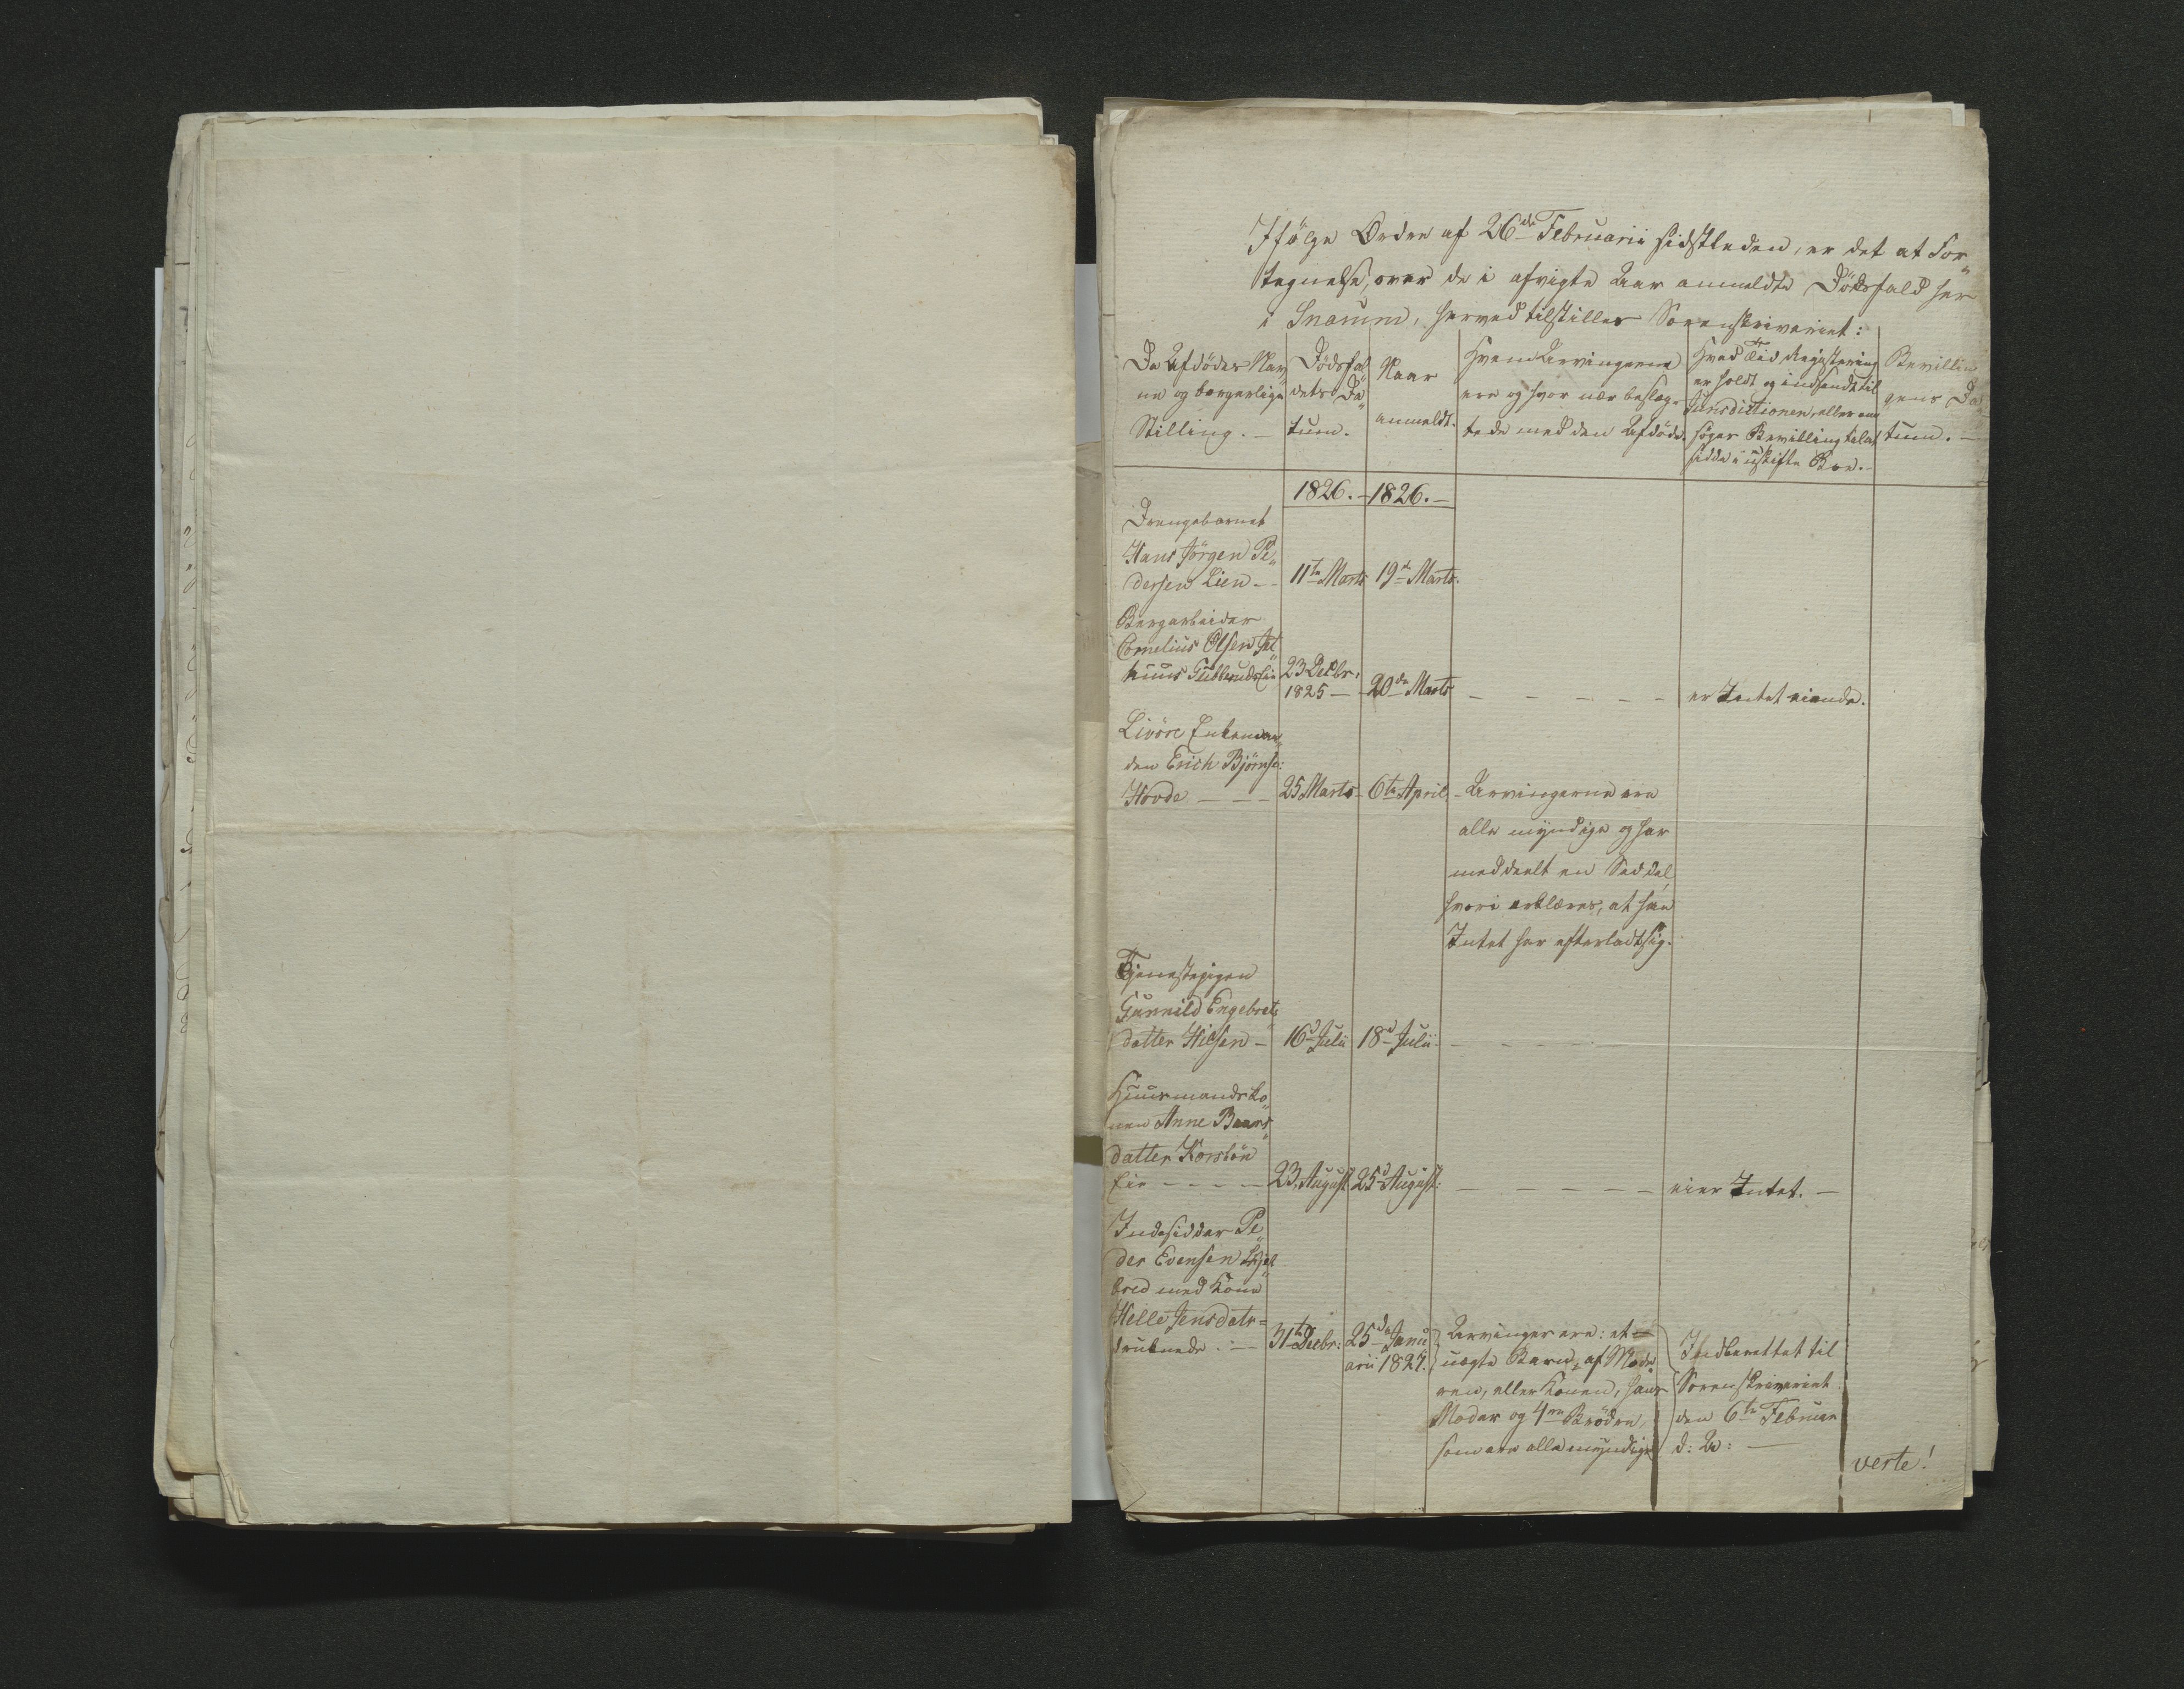 Ifølge Ordre af 26de Februarii sidstleden, er det at For„
tegnelse, over de i afvigte Aar anmeldte Dödsfald her
i Snarum, herved tilstilles Sorenskriveriet:
De Afdödes Nav„
ne og borgerlige
Stilling. —
Dödsfal„
dets Da„
tum.
Naar
anmeldt.
Hvem Arvingerne
ere og hvor nær beslæg„
tede med den Afdöde.
Hvad Tid Registering
er holdt og indsendt til
Jurisdictionen, eller om
söges Bevilling til at
sidde i uskifte Boe. —
Bevillin„
gens Da„
tum. —
1826. — 1826. —
Drengebarnet
Hans Jörgen Pe„
dersen Lien — 11te Marts 19de Marts.
Bergarbeider
Cornelius Olsen
huus 23 Decbr:
1825 — 20de Marts — — — — — er Intet eiende.
Enkeman„
den Erich Björns:
Hovde — — — 25 Marts — 6te April. — Arvingerne ere
alle myndige og har
meddeelt en Seddel,
hvori erklæres, at han
Intet har efterladt sig.
Tjenestepigen
Gunnild Engebrets„
datter Hilsen — 16d Julii 18d Julii. — — — —
Huusmandsko„
nen Anne
datter
Eie — — — — 23. August. 25d August: — — — — — eier Intet. —
Indesidder Pe„
der Evensen
bred med Kone
Helle Jensdatr=
druknede. — 31te Decbr: 25de Janu
arii 1827. Arvinger ere: et
uægte Barn, af Mode„
ren, eller Konen, hans
Moder og 4re Brödre,
som ere alle myndige
Indberettet til
Sorenskriveriet
den 6te Februar
d: A: —
verte!